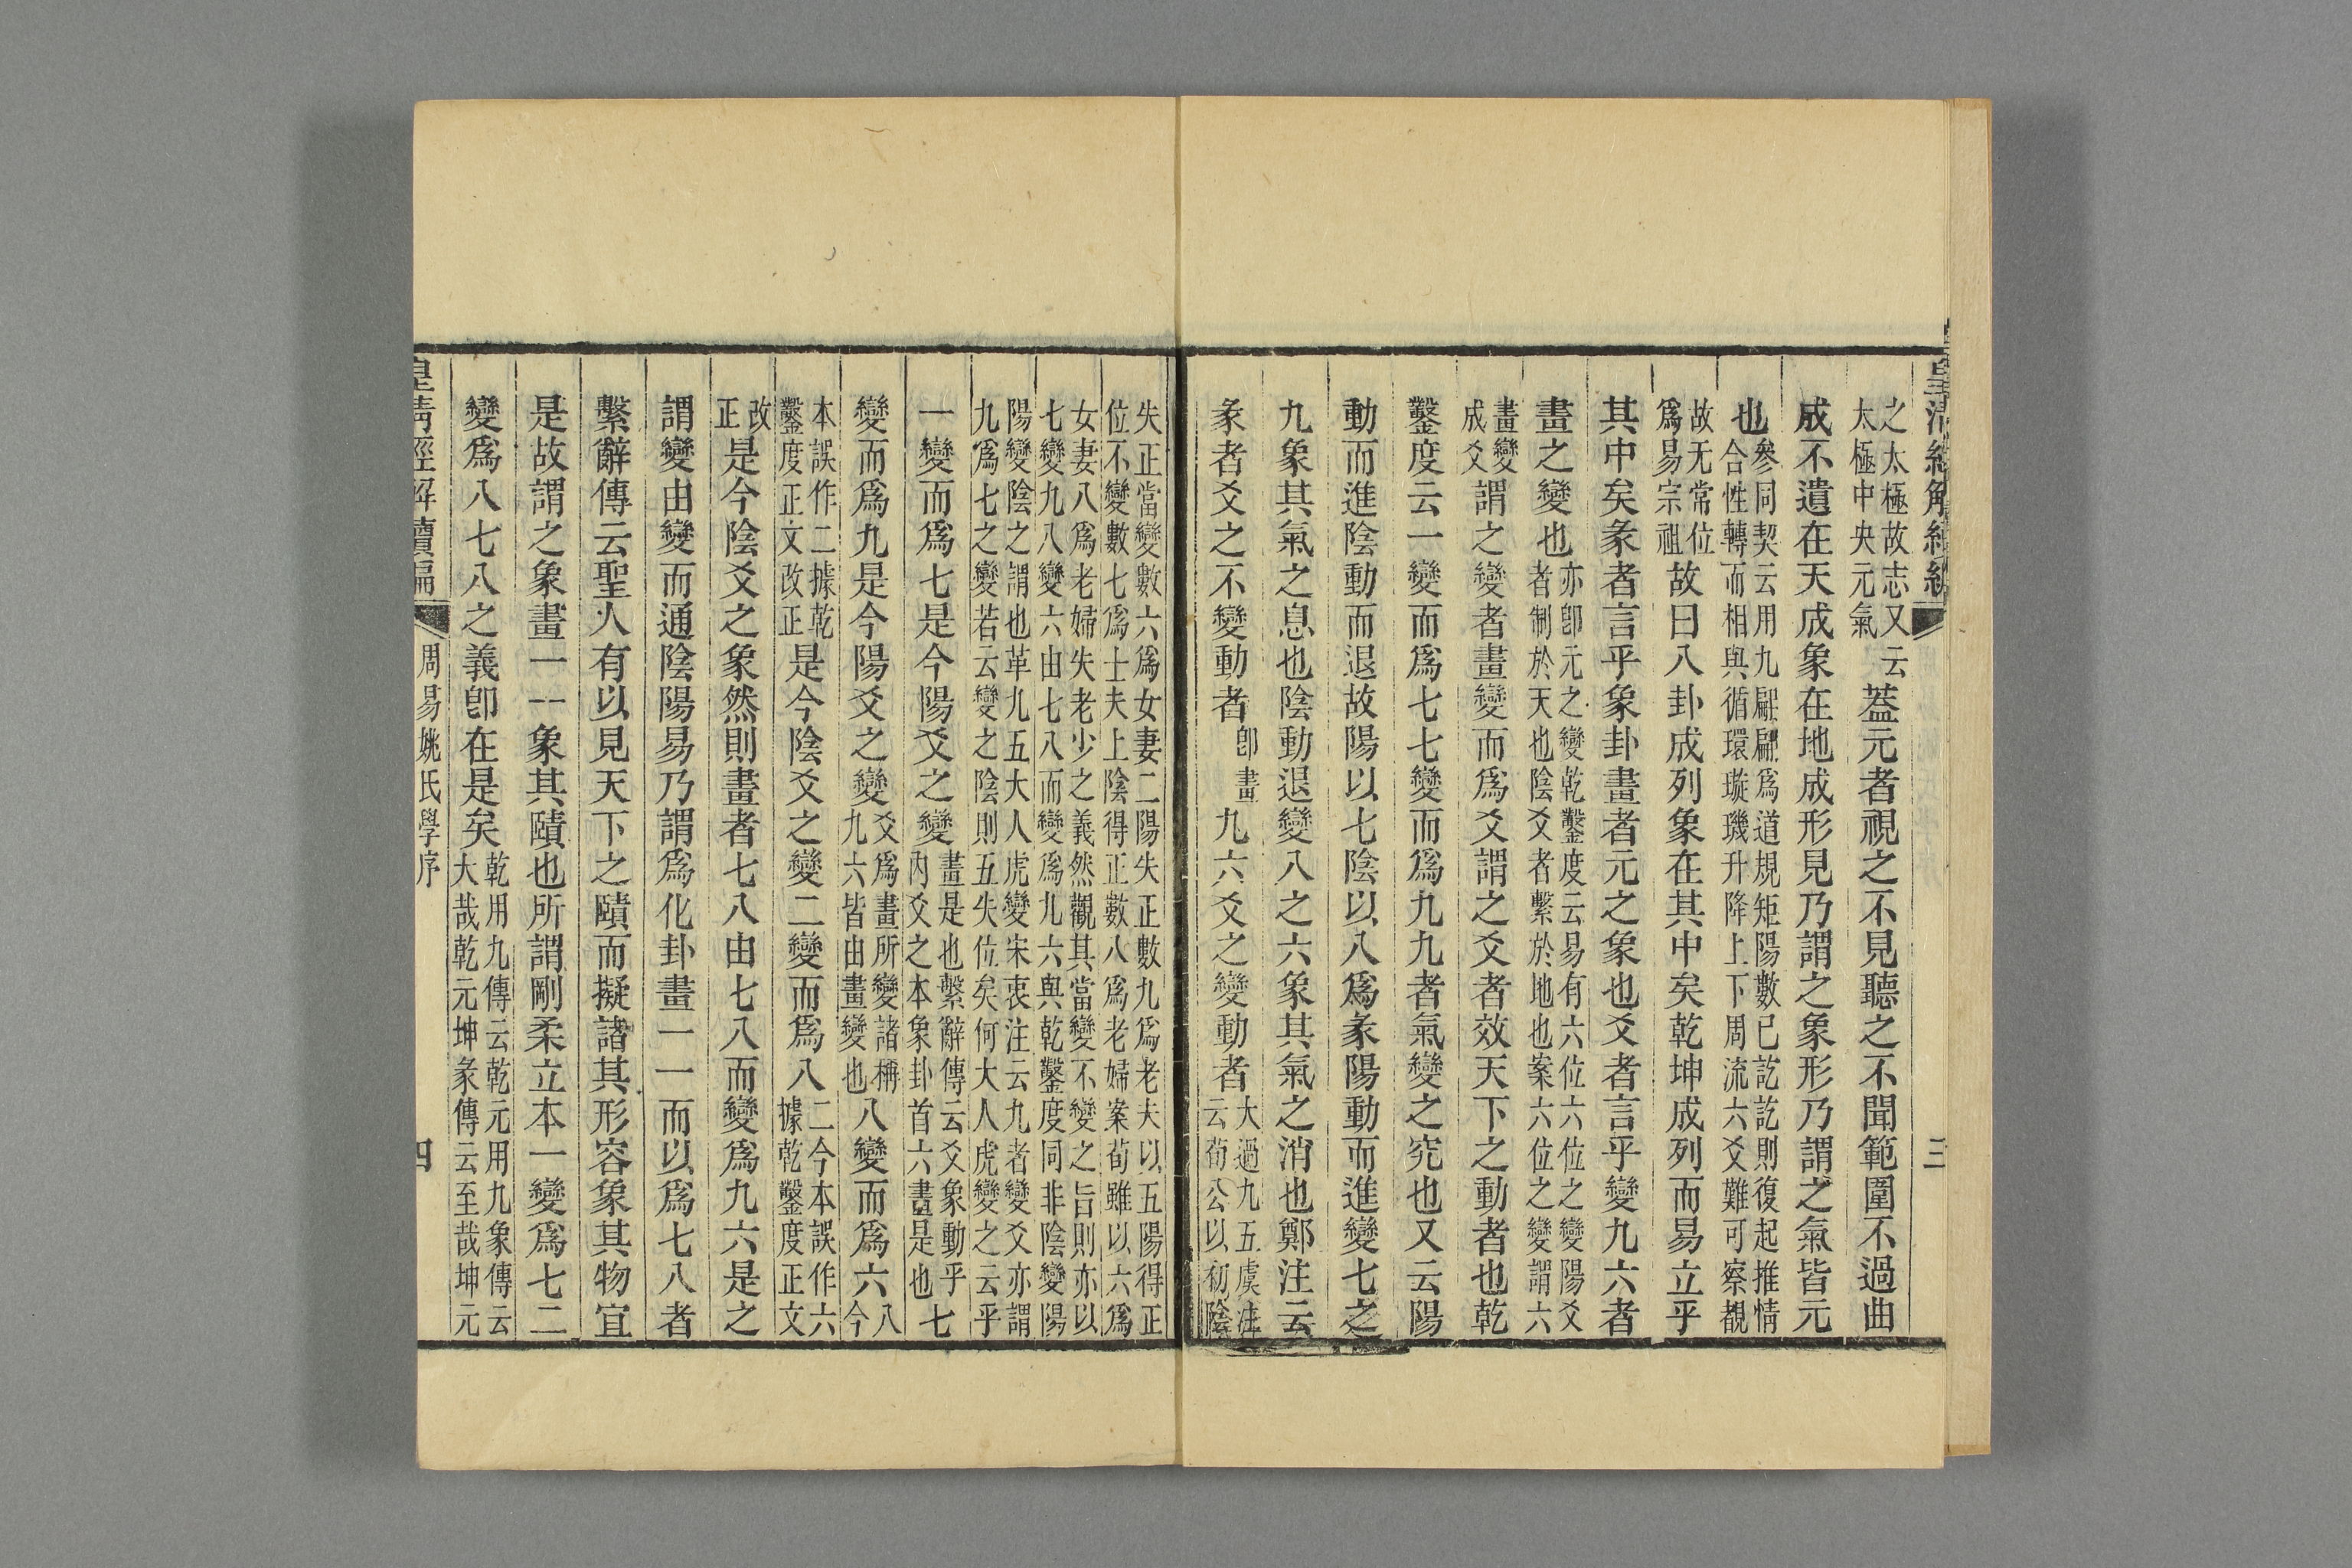 皇清經解續編
三
之太極故志又云
太極中央元氣
蓋元者視之不見聽之不聞範圍不過曲
成不遺在天成象在地成形見乃謂之象形乃謂之氣皆元
也
參同契云用九翩翩爲道規矩陽數已訖訖則復起推情
合性轉而相與循環璇璣升降上下周流六爻難可察覩
故无常位
爲易宗祖
故曰八卦成列象在其中矣乾坤成列而易立乎
其中矣彖者言乎象卦畫者元之象也爻者言乎變九六者
畫之變也
亦卽元之變乾鑿度云易有六位六位之變陽爻
者制於天也陰爻者繫於地也案六位之變謂六
畫變
成爻
謂之變者畫變而爲爻謂之爻者效天下之動者也乾
鑿度云一變而爲七七變而爲九九者氣變之究也又云陽
動而進陰動而退故陽以七陰以八爲彖陽動而進變七之
九象其氣之息也陰動退變八之六象其氣之消也鄭注云
彖者爻之不變動者
卽畫
九六爻之變動者
大過九五虞注
云荀公以初陰
失正當變數六爲女妻二陽失正數九爲老夫以五陽得正
位不變數七爲士夫上陰得正數八爲老婦案荀雖以六爲
女妻八爲老婦失老少之義然觀其當變不變之旨則亦以
七變九八變六由七八而變爲九六與乾鑿度同非陰變陽
陽變陰之謂也革九五大人虎變宋衷注云九者變爻亦謂
九爲七之變若云變之陰則五失位矣何大人虎變之云乎
一變而爲七是今陽爻之變
畫是也繫辭傳云爻象動乎
內爻之本象卦首六畫是也
七
變而爲九是今陽爻之變
爻爲畫所變諸稱
九六皆由畫變也
八變而爲六
八
今
本誤作二據乾
鑿度正文改正
是今陰爻之變二變而爲八
二今本誤作六
據乾鑿度正文
改
正
是今陰爻之象然則畫者七八由七八而變爲九六是之
謂變由變而通陰陽易乃謂爲化卦畫一一而以爲七八者
繫辭傳云聖人有以見天下之賾而擬諸其形容象其物宜
是故謂之象畫一--象其賾也所謂剛柔立本一變爲七二
變爲八七八之義卽在是矣
乾用九傳云乾元用九象傳云
大哉乾元坤彖傳云至哉坤元
皇清經解續編
周易姚氏學序
四